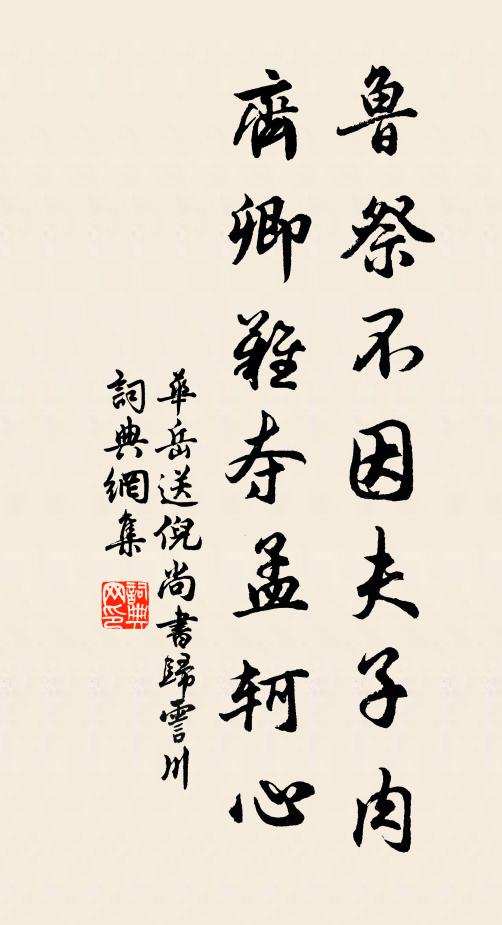 魯祭不因夫子肉
齊卿難夺孟軻心
華岳送倪尚書歸霅川
詞典網集
詞典网印